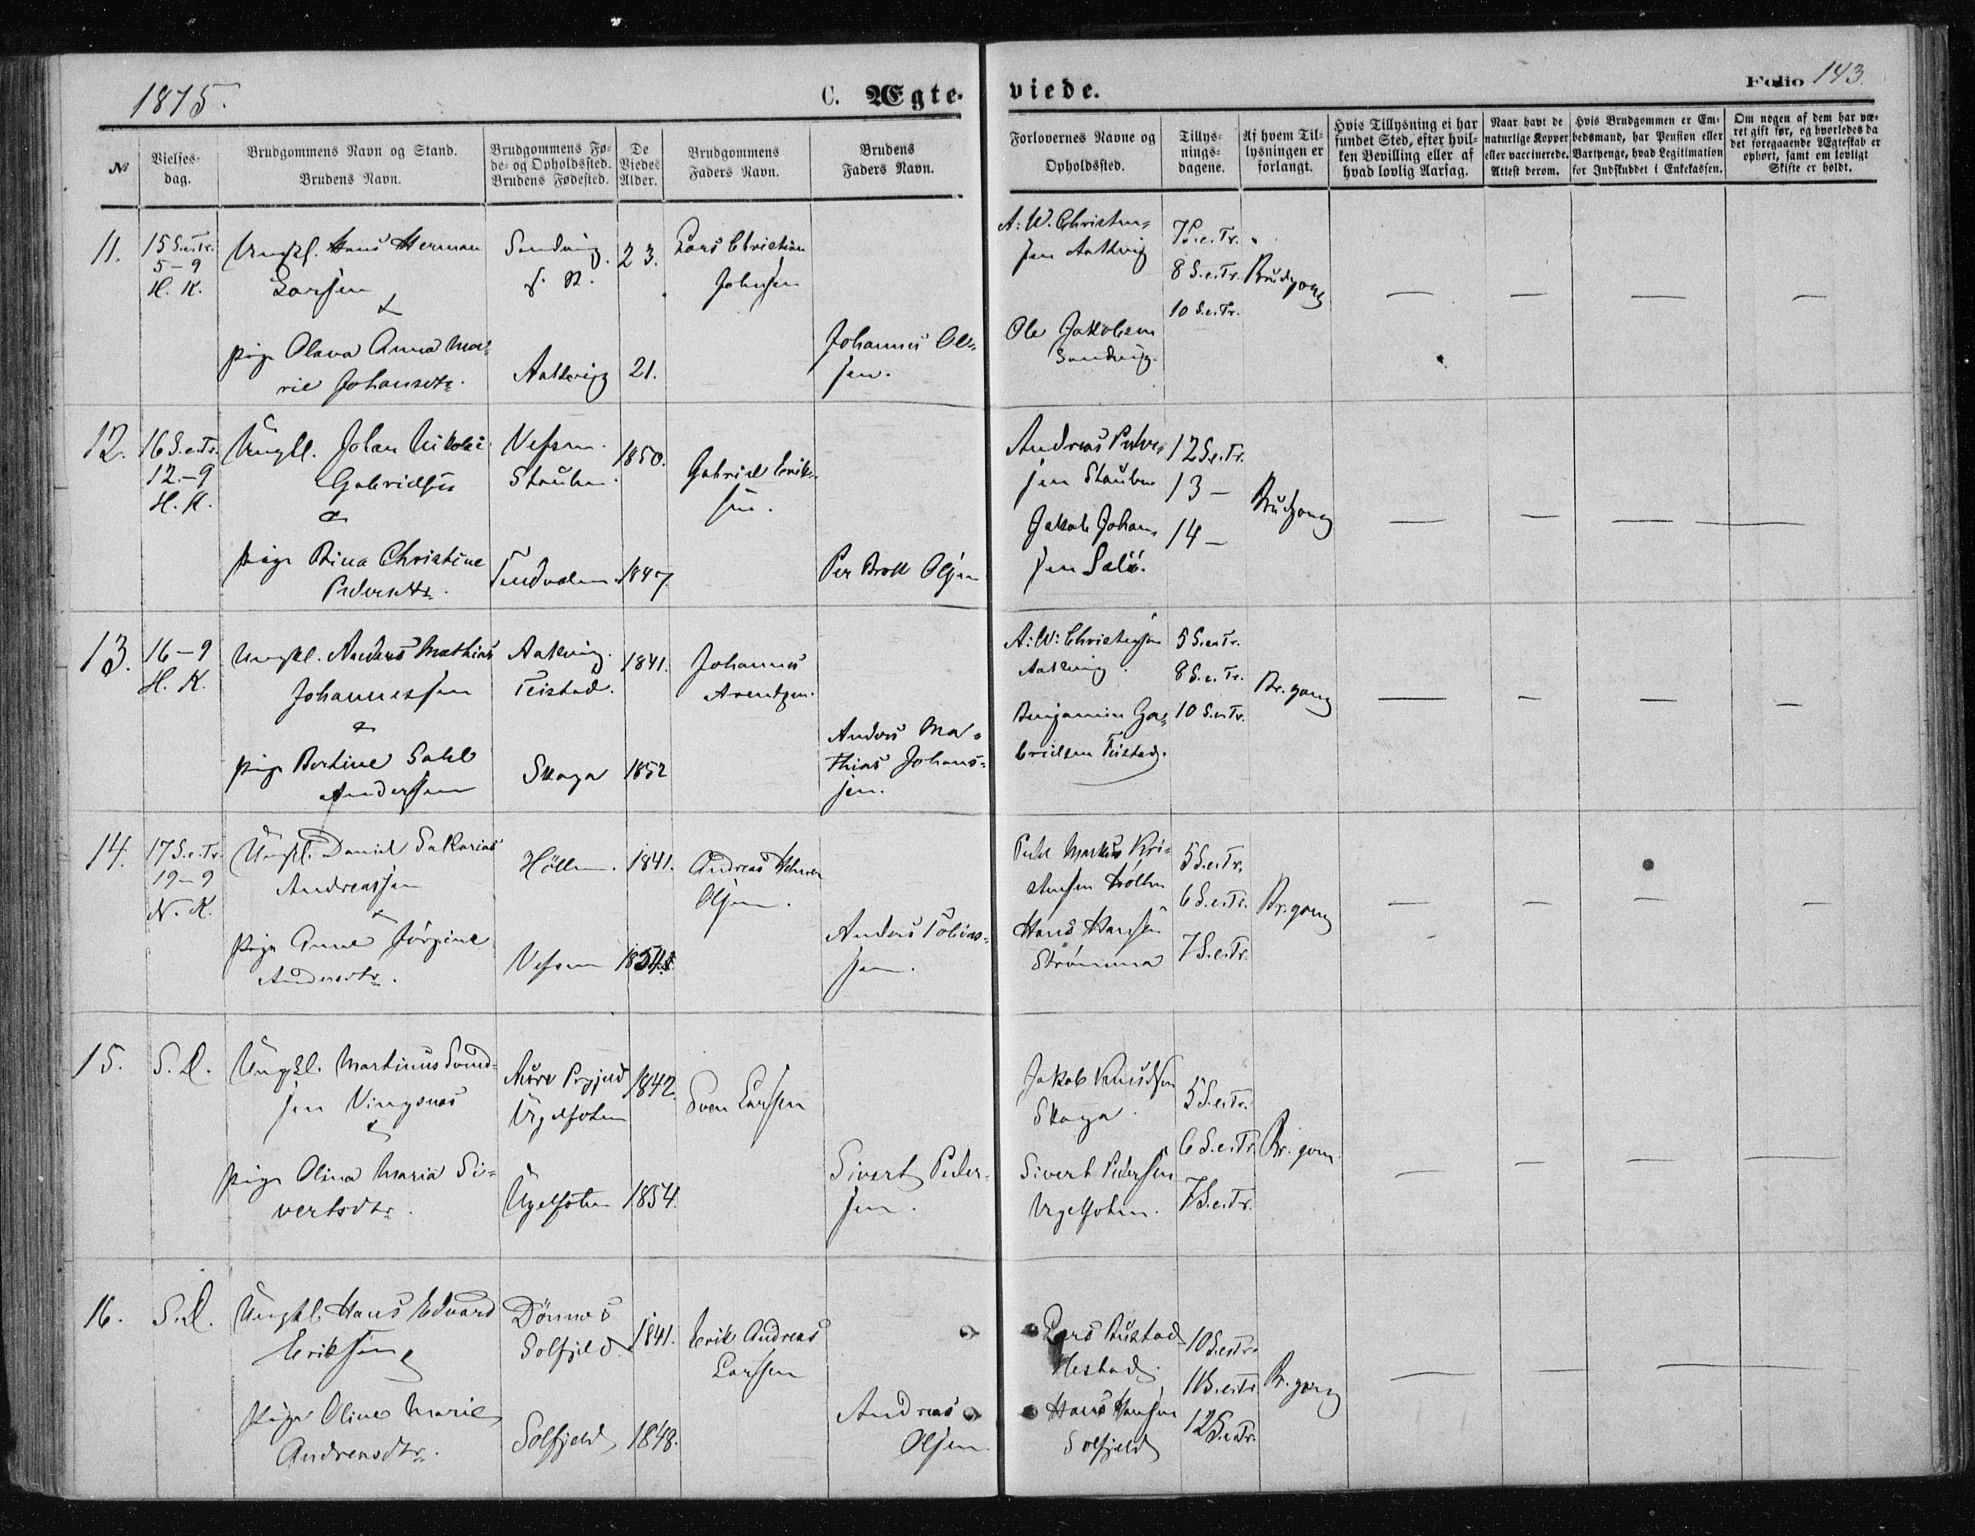 1875.
C. Ægte-
viede.
Folio 143.
№
Vielses-
dag.
Brudgommens Navn og Stand.
Brudens Navn.
Brudgommens Fø-
de- og Opholdssted.
Brudens Fødested.
De
Viedes
Alder.
Brudgommens
Faders Navn.
Brudens
Faders Navn.
Forlovernes Navne og
Opholdssted.
Tillys-
nings-
dagene.
Af hvem Til-
lysningen er
forlangt.
Hvis Tillysning ei har
fundet Sted, efter hvil-
ken Bevilling eller af
hvad lovlig Aarsag.
Naar havt de
naturlige Kopper
eller vaccinerede.
Attest derom.
Hvis Brudgommen er Em-
bedsmand, har Pension eller
Vartpenge, hvad Legitimation
for Indskuddet i Enkekassen.
Om nogen af dem har væ-
ret gift før, og hvorledes da
det foregaaende Ægteskab er
ophørt, samt om lovligt
Skifte er holdt.
11.
15 S.e.Tr.
5-9
H. K.
Ungkl. Hans Herman
Larsen
&
pige Olava Anna Ma-
rie Johansdtr.
Sandvig
Aakvig
23.
21.
Lars Christian
Johnsen
Johannes Ol-
sen.
A: W. Christen-
sen Aakvig
Ole Jakobsen
Sandvig.
7 S.e.Tr.
8 S.e.Tr.
10 S.e.Tr.
Brudgom
12.
16 S.e.Tr.
12-9
H. K.
Ungkl. Johan Nikolai
Gabrielsen
&
pige Rina Christine
Pedersdtr.
Vefsen.
Stauben.
1850.
1847.
Gabriel Erik-
sen.
Per Brott Olsen
Andreas Peder-
sen Stauben
Jakob Johan-
sen Salö.
12 S.e.Tr.
13 —
14 —
Brudgom
13.
16-9
H. K.
Ungkl. Anders Mathias
Johannessen
&
pige Bertine Sahl
Andersen
Aakvig.
Teistad.
Skaga
1841.
1852
Johannes
Arentzen.
Anders Ma-
thias Johans-
sen.
A: W: Christensen
Aakvig.
Benjamin Ga-
brielsen Teistad.
5 S.e.Tr.
8 S.e.Tr.
10 S.e.Tr.
Br.gom
14.
17 S.e.Tr.
19-9
N. K.
Ungkl. Daniel Sakarias
Andreassen
&
pige Anne Jörgine
Andersdtr.
Höllen.
Vefsen
1841.
1854.
Andreas
Olsen.
Anders Tobias-
sen.
Markus Kri-
stensen
Hans Hansen
Strömmen
5 S.e.Tr.
6 S.e.Tr.
7 S.e.Tr.
Br.gom
15.
S. D.
Ungkl. Martinus Svend-
sen Vingsnes
&
pige Olina Maria Si-
vertsdtr.
Aure Prgjeld
1842.
1854.
Sven Larsen
Sivert Peder-
sen.
Jakob Knudsen
Skaga.
Sivert Pedersen
5 S.e.Tr.
6 S.e.Tr.
7 S.e.Tr.
Br.gom
16.
S.D.
Ungkl. Hans Edvard
Eriksen
&
pige Oline Marie
Andreasdtr.
Dönnes
Solfjeld.
Solfjeld
1841.
1848.
Erik Andreas
Larsen
Andreas
Olsen.
Lars
Hestad.
Hans Hansen
Solfjeld
10 S.e.Tr.
11 S.e.Tr.
12 S.e.Tr.
Br.gom